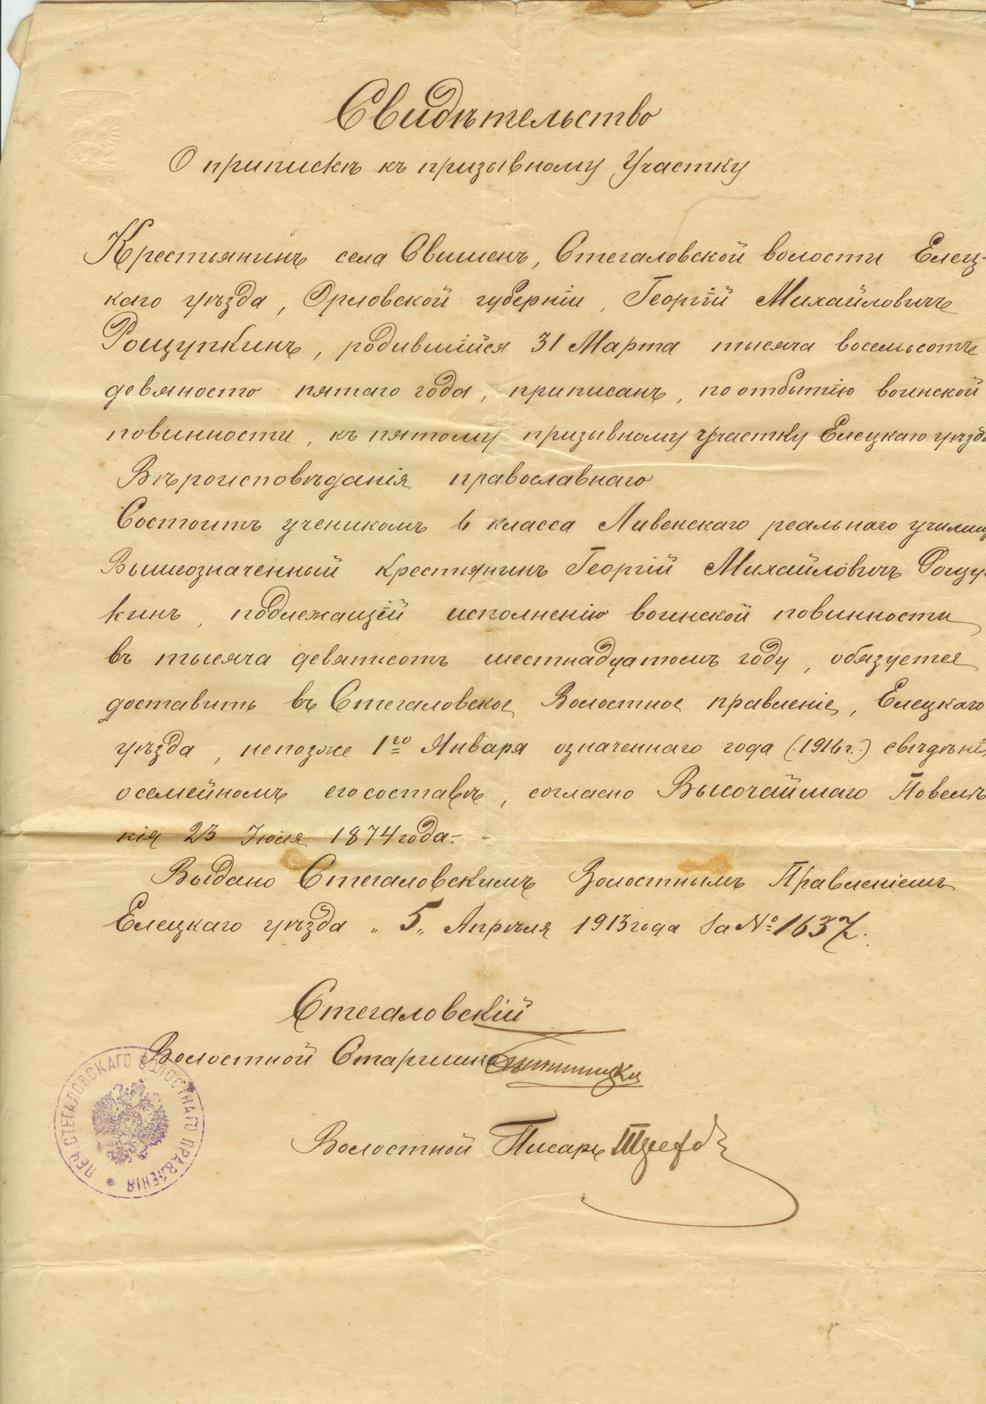 Свидѣтельство
О припискѣ къ призывному Участку
Крестьянинъ села Свишенъ, Стегаловской волости Елец-
каго уѣзда, Орловской губерніи, Георгій Михайловичъ
Рощупкинъ, родившійся 31 Марта тысяча восемьсотъ
девяносто пятаго года, приписанъ, по отбытію воинской
повинности, къ пятому призывному участку Елецкаго уѣзда
Вѣроисповѣданія православнаго
Состоитъ ученикомъ 6 класса Ливенскаго реальнаго училищ
Вышеозначенный крестьянинъ Георгій Михайловичъ Рощу-
кинъ, подлежащій исполненію воинской повинности
въ тысяча девятисотъ шестнадцатомъ году, обязуется
доставить въ Стегаловское Волостное правленіе, Елецкаго
уѣзда, непозже 1го Января означеннаго года (1916 г.) свѣдѣнія
о семейномъ его составѣ, согласно Высочайшаго Повелѣ
нія 23 Іюля 1874 года.
Выдано Стегаловскимъ Волостнымъ Правленіемъ
Елецкаго уѣзда „5„ Апрѣля 1913 года за № 1637.
Стегаловскій
Волостной Старшина
Волостной Писарь
ПЕЧ. СТЕГАЛОВСКАГО ВОЛОСТНАГО ПРАВЛЕНІЯ